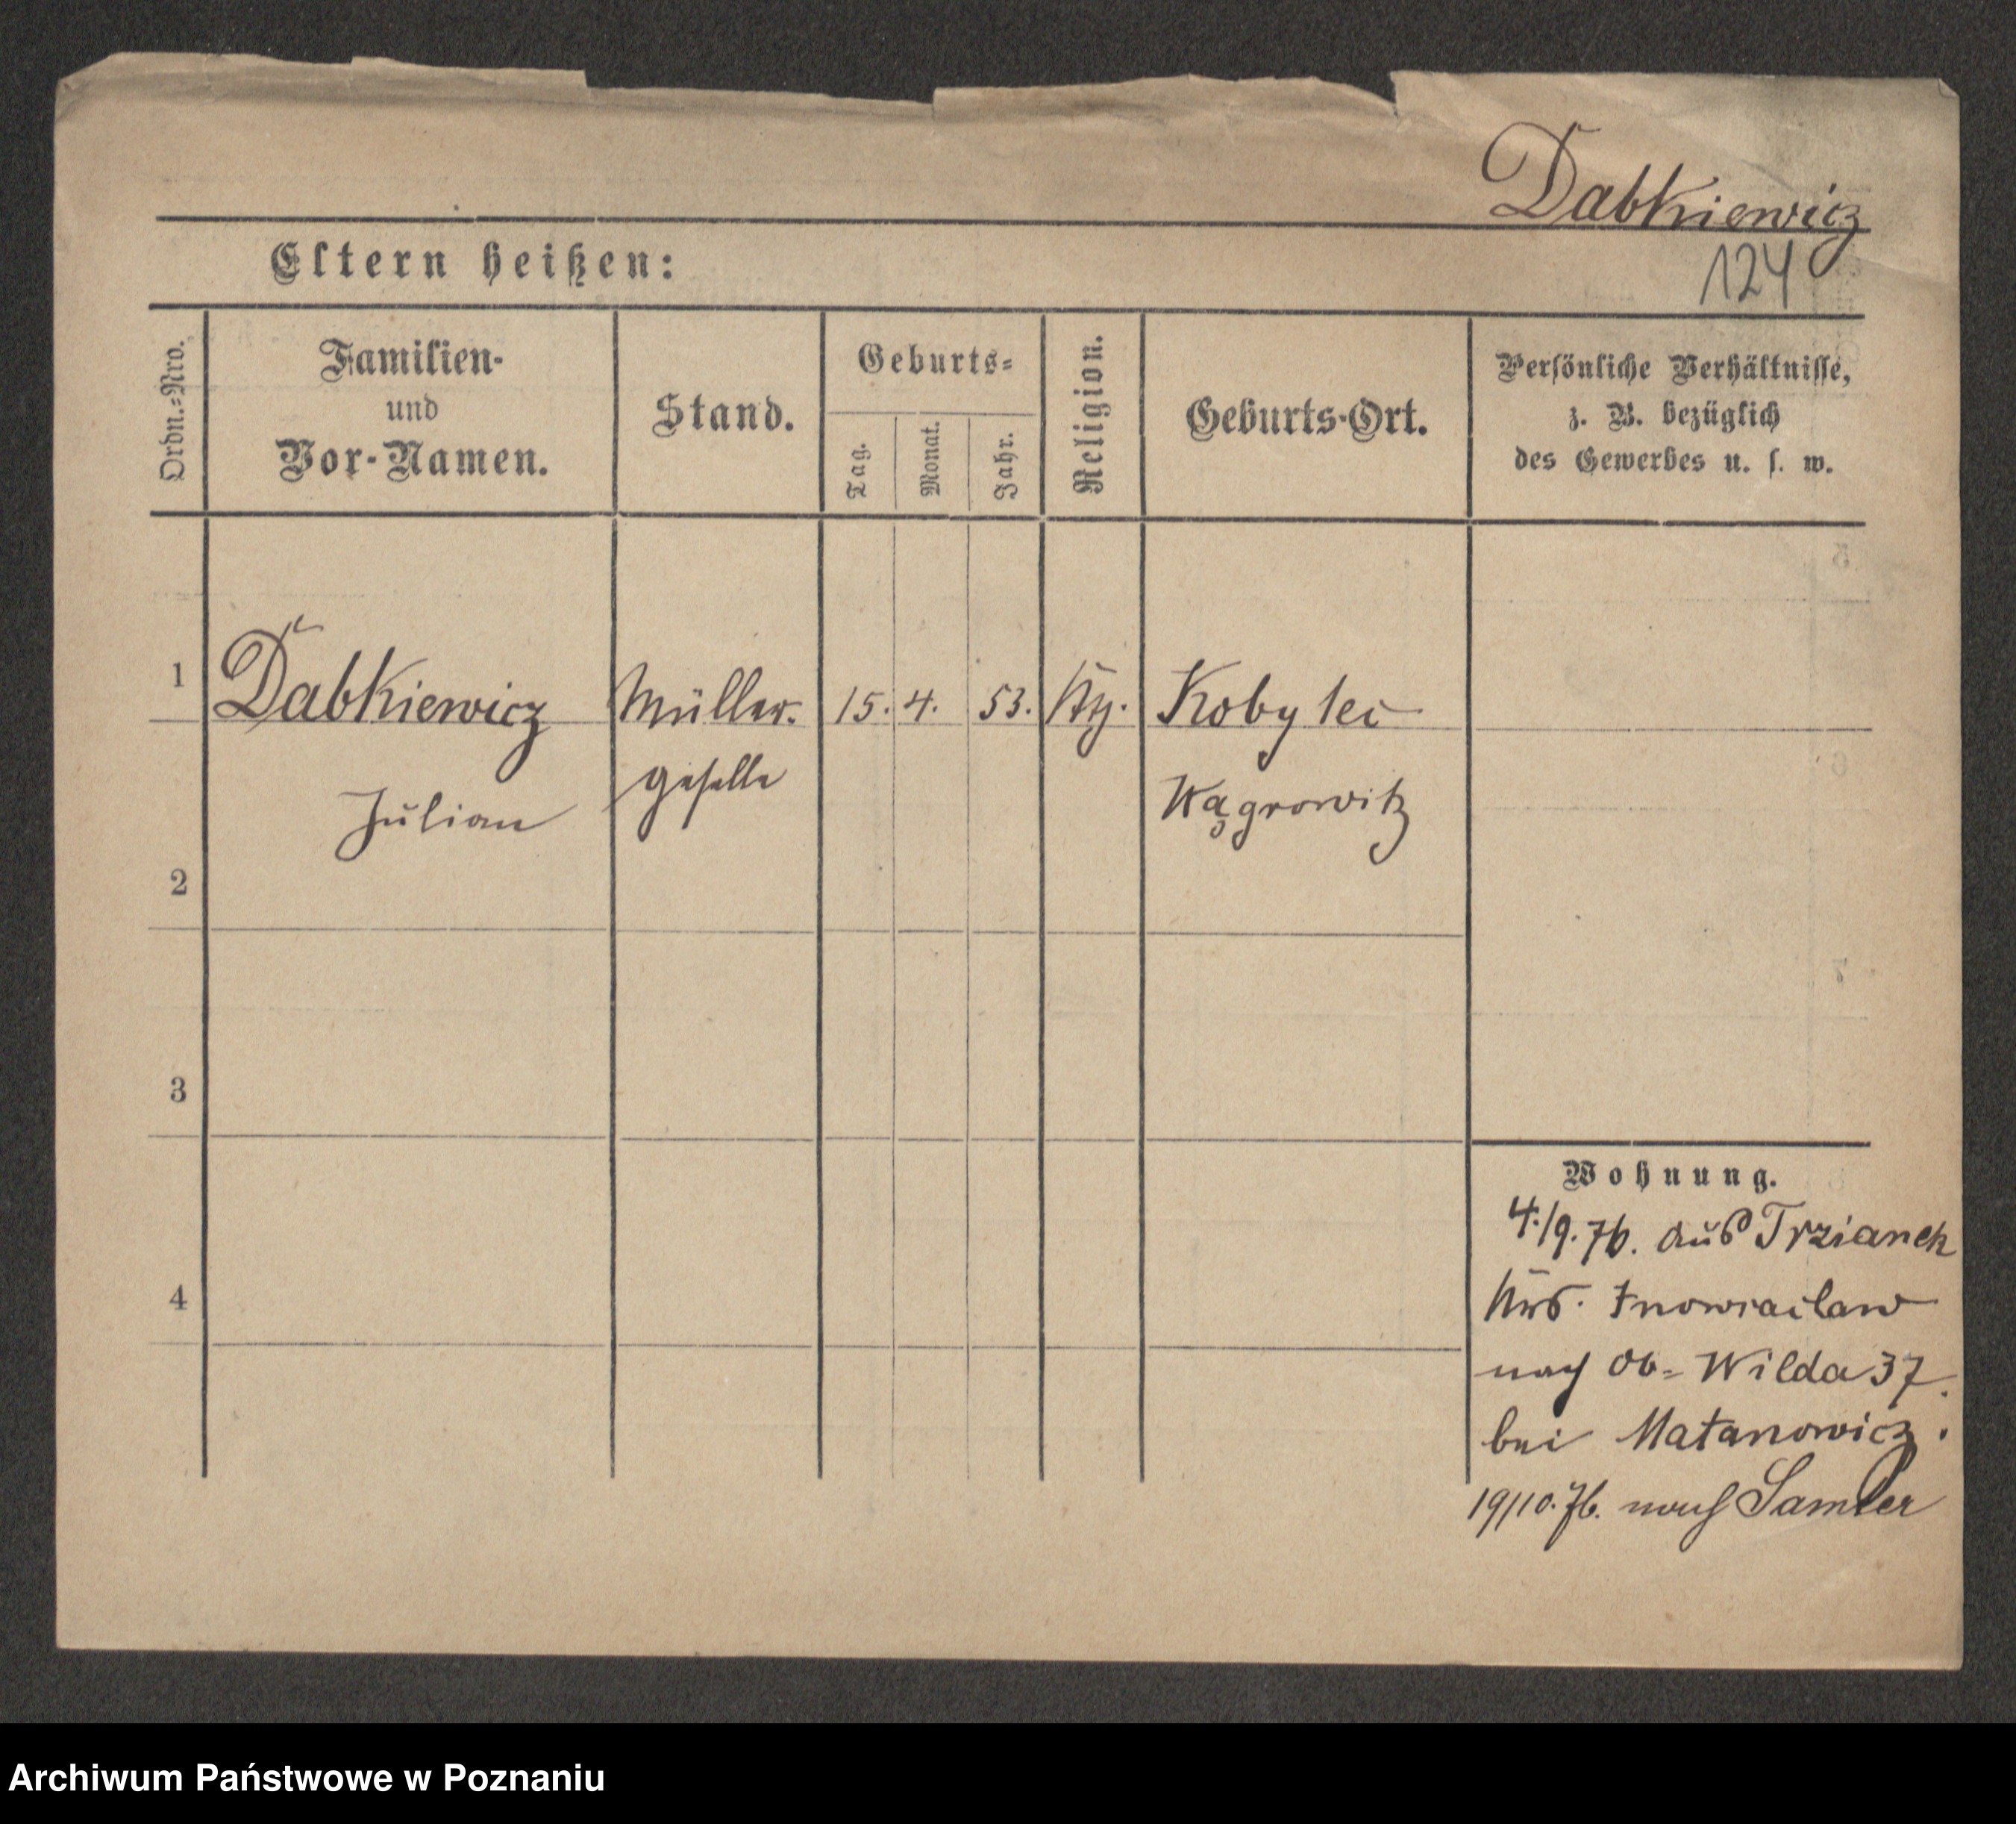 Dabkiewicz
124
Eltern heißen:
Ordn.=Nro.
Familien-
und
Vor-Namen.
Stand.
Geburts=
Tag.
Monat.
Jahr.
Religion.
Geburts-Ort.
Persönliche Verhältnisse,
z. B. bezüglich
des Gewerbes u. s. w.
1
Dabkiewicz
Julian
Müller-
geselle
15.
4.
53.
Kth.
Kobylec
Wągrowitz
2
3
4
Wohnung.
4./9.76. aus Trzianek
Krs. Inowraclaw
nach Ob= Wilda 37.
bei Matanowicz.
19/10.76. nach Samter
Archiwum Państwowe w Poznaniu